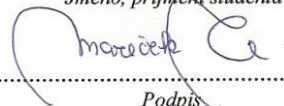 Jméno, příjmení studenta
Podpis